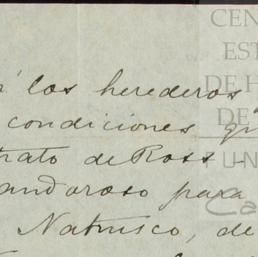 los herederos
condiciones
trato de Ross -
andoroso para
Natrisco, de
CEN
EST
DE H
DE
FUN
Ca